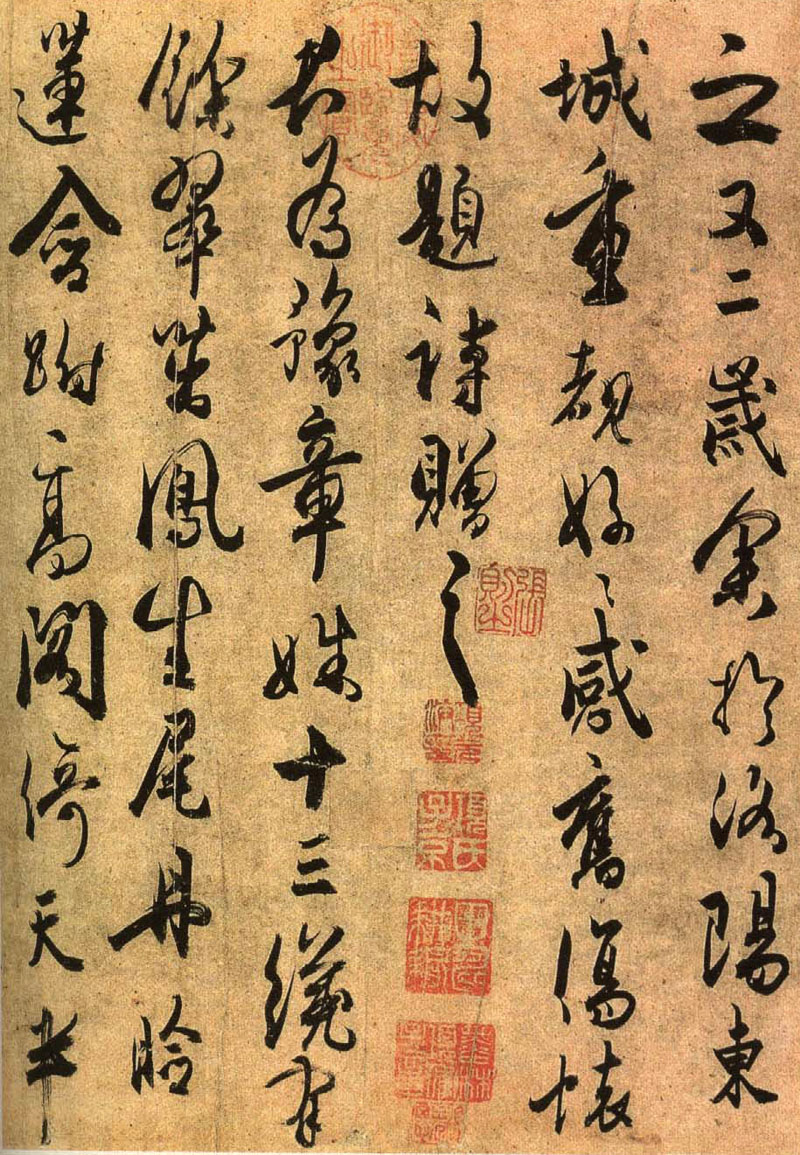 之又二歲余於洛陽東
城重覩好〻感舊傷懷
故題詩贈之
君為豫章姝十三纔有
餘翠茁鳳生尾丹臉
蓮含跗高閣倚天半
張則之